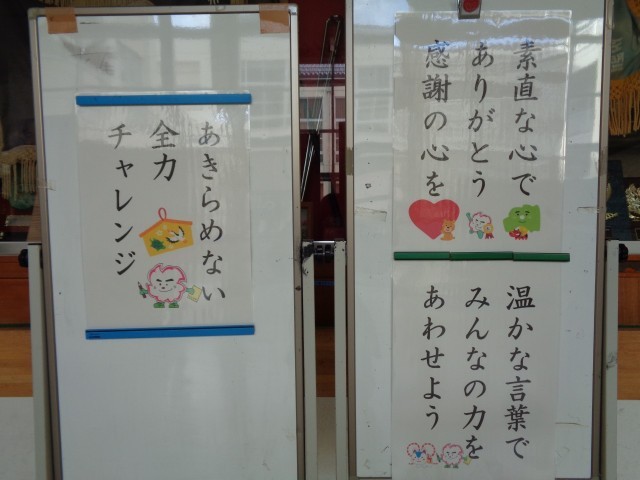 素直な心で
ありがとう
感謝の心を
温かな言葉で
みんなの力を
あわせよう
あきらめない
全力
チャレンジ